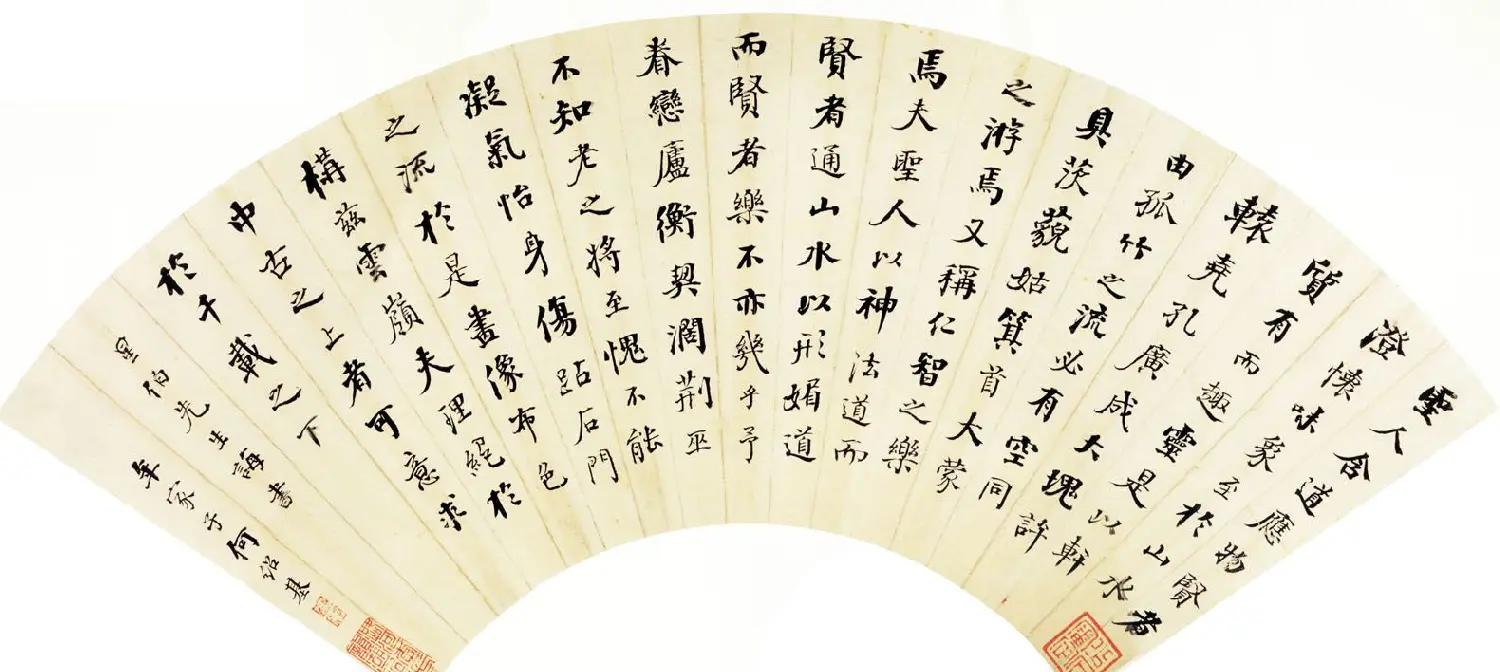 聖人含道應物賢者
澄懷味象至於山水
質有而趣靈是以軒
轅堯孔廣成大塊許
由孤竹之流必有空同
具茨藐姑箕首大蒙
之游焉又稱仁智之樂
焉夫聖人以神法道而
賢者通山水以形媚道
而賢者樂不亦幾乎予
眷戀廬衡契闊荊巫
不知老之將至愧不能
凝氣怡身傷跕石門
之流於是畫像布色
構茲雲嶺夫理絕於
中古之上者可意求
於千載之下
星伯先生誨書
年家子何紹基